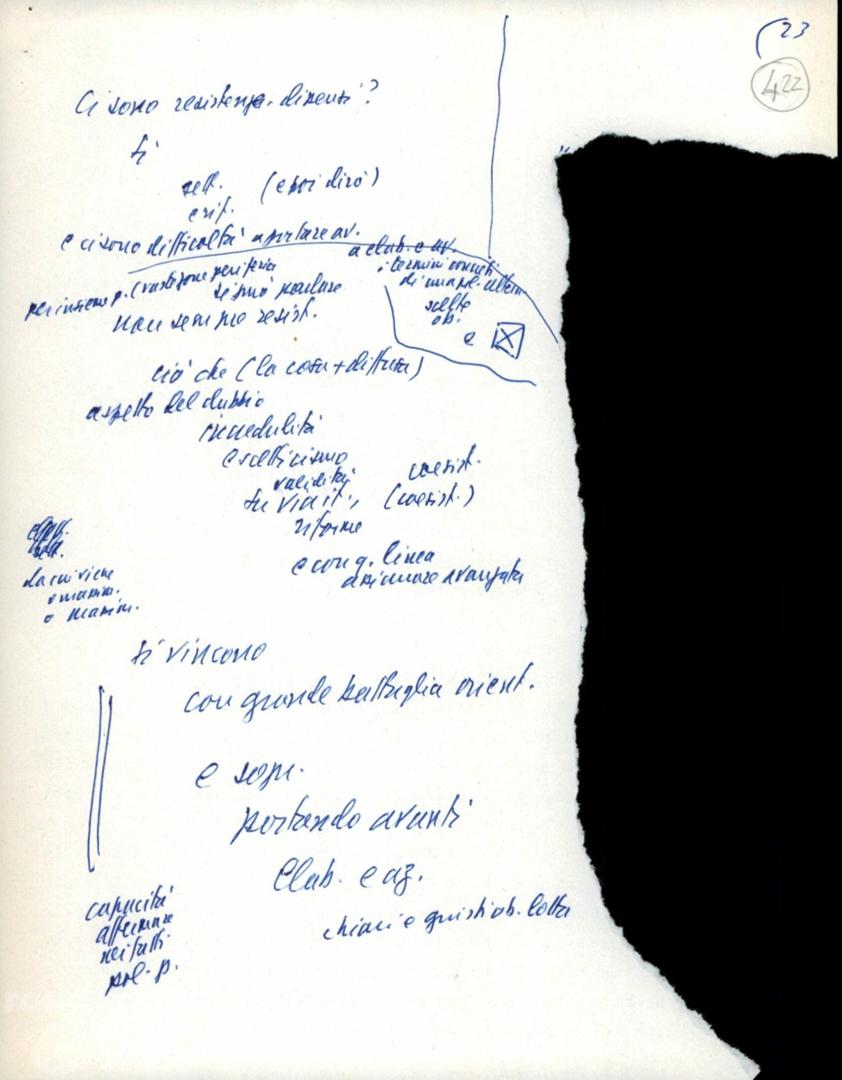 23
422
Ci sono resistenze. dissensi?
Sì
sett. (e poi dirò)
crit.
e ci sono difficoltà a portare av.
a elab. e av.
i termini concreti
di una pol.
scelte
ob.
e
per insieme p. (
periferia
si può parlare
Non sempre resist.
ciò che (la cosa + diffusa)
aspetto del dubbio
incredulità
e scetticismo
validità
coesist.
su via it., (coesist.)
riforme
e con q. linea
avanzata
sett.
da cui viene
o massim.
si vincono
con grande battaglia orient.
e sopr.
portando avanti
Elab. e az.
chiari e giusti ob. lotta
capacità
affermare
nei fatti
pol. p.